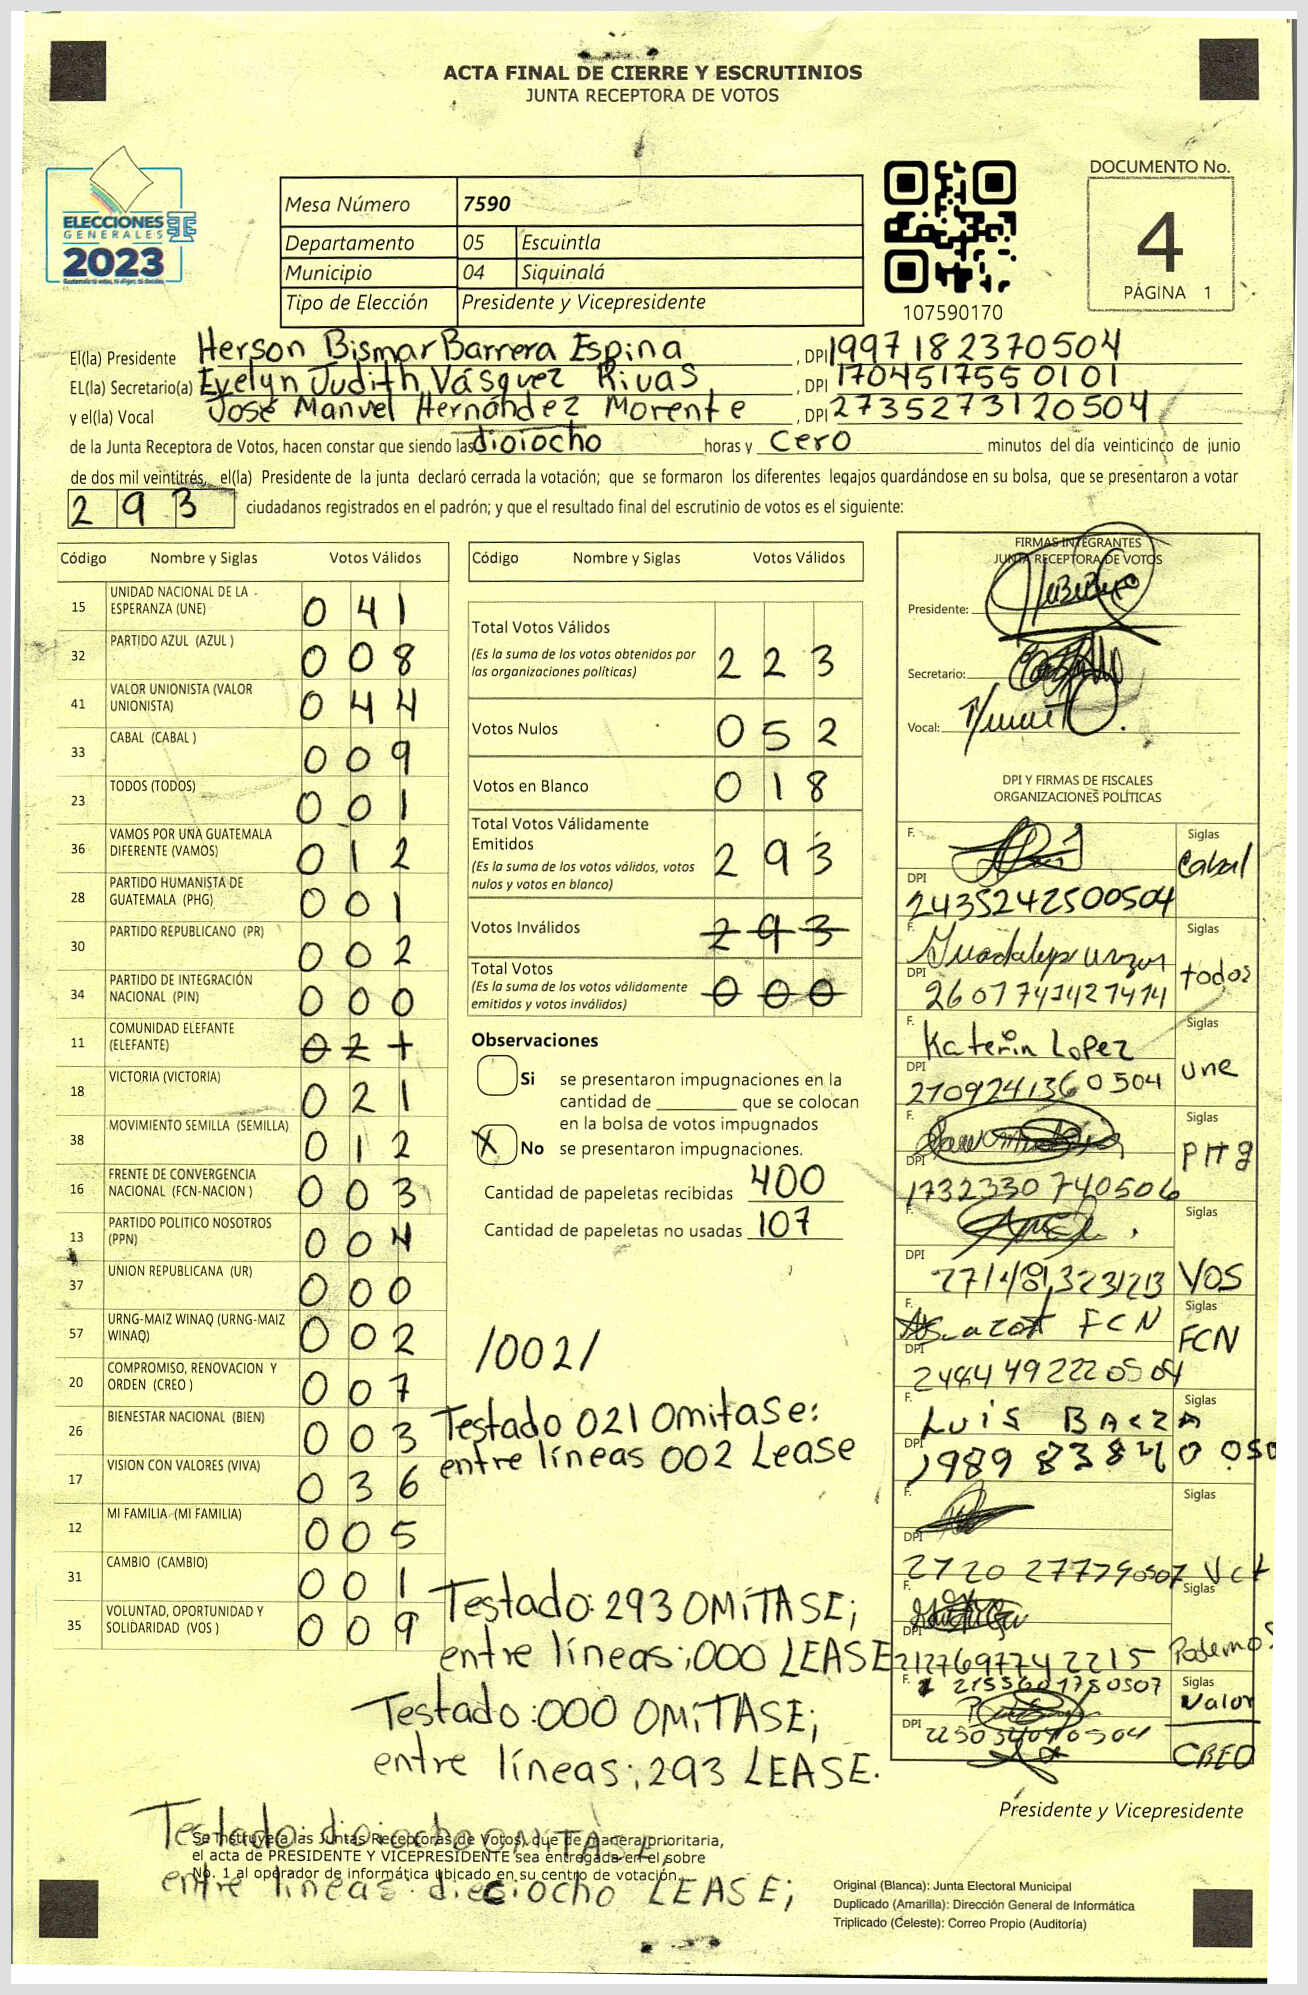 ACTA FINAL DE CIERRE Y ESCRUTINIOS
JUNTA RECEPTORA DE VOTOS
ELECCIONES
GENERALES
2023
Mesa Número 7590
Departamento 05 Escuintla
Municipio 04 Siquinalá
Tipo de Elección Presidente y Vicepresidente
107590170
DOCUMENTO No.
4
PÁGINA 1
El(la) Presidente Herson Bismar Barrera Espina, DPI 1997182370504
EL(la) Secretario(a) Evelyn Judith Vásquez Rivas, DPI 1704517550101
y el(la) Vocal José Manuel Hernández Morente, DPI 2735273120504
de la Junta Receptora de Votos, hacen constar que siendo las dioiocho horas y cero minutos del día veinticinco de junio
de dos mil veintitrés, el(la) Presidente de la junta declaró cerrada la votación; que se formaron los diferentes legajos guardándose en su bolsa, que se presentaron a votar
293 ciudadanos registrados en el padrón; y que el resultado final del escrutinio de votos es el siguiente:
Código Nombre y Siglas Votos Válidos
15 UNIDAD NACIONAL DE LA ESPERANZA (UNE) 041
32 PARTIDO AZUL (AZUL) 008
41 VALOR UNIONISTA (VALOR UNIONISTA) 044
33 CABAL (CABAL) 009
23 TODOS (TODOS) 001
36 VAMOS POR UNA GUATEMALA DIFERENTE (VAMOS) 012
28 PARTIDO HUMANISTA DE GUATEMALA (PHG) 001
30 PARTIDO REPUBLICANO (PR) 002
34 PARTIDO DE INTEGRACIÓN NACIONAL (PIN) 000
11 COMUNIDAD ELEFANTE (ELEFANTE) 021
18 VICTORIA (VICTORIA) 021
38 MOVIMIENTO SEMILLA (SEMILLA) 012
16 FRENTE DE CONVERGENCIA NACIONAL (FCN-NACION) 003
13 PARTIDO POLITICO NOSOTROS (PPN) 004
37 UNION REPUBLICANA (UR) 000
57 URNG-MAIZ WINAQ (URNG-MAIZ WINAQ) 002
20 COMPROMISO, RENOVACION Y ORDEN (CREO) 007
26 BIENESTAR NACIONAL (BIEN) 003
17 VISION CON VALORES (VIVA) 036
12 MI FAMILIA (MI FAMILIA) 005
31 CAMBIO (CAMBIO) 001
35 VOLUNTAD, OPORTUNIDAD Y SOLIDARIDAD (VOS) 009
Código Nombre y Siglas Votos Válidos
Total Votos Válidos 223
(Es la suma de los votos obtenidos por
las organizaciones políticas)
Votos Nulos 052
Votos en Blanco 018
Total Votos Válidamente
Emitidos 293
(Es la suma de los votos válidos, votos
nulos y votos en blanco)
Votos Inválidos 293
Total Votos 000
(Es la suma de los votos válidamente
emitidos y votos inválidos)
Observaciones
Si se presentaron impugnaciones en la
cantidad de que se colocan
en la bolsa de votos impugnados
X No se presentaron impugnaciones.
Cantidad de papeletas recibidas 400
Cantidad de papeletas no usadas 107
/002/
Testado 021 Omitase:
entre líneas 002 Lease
Testado: 293 OMITASE;
entre líneas; 000 LEASE
Testado: 000 OMITASE;
entre líneas; 293 LEASE.
Testado: dioiocho OMITASE,
entre lineas: dieciocho LEASE;
Se instruye a las Juntas Receptoras de Votos, que de manera prioritaria,
el acta de PRESIDENTE Y VICEPRESIDENTE sea entregada en el sobre
No. 1 al operador de informática ubicado en su centro de votación.
FIRMAS INTEGRANTES
JUNTA RECEPTORA DE VOTOS
Presidente:
Secretario:
Vocal:
DPI Y FIRMAS DE FISCALES
ORGANIZACIONES POLÍTICAS
F. Siglas
Cabal
DPI
2435242500504
F. Siglas
Guadalupe
todos
DPI
2607741427414
F. Siglas
Katerin Lopez
une
DPI
2109241360504
F. Siglas
PHg
DPI
1732330740506
F. Siglas
DPI
VOS
F. Siglas
FCN
FCN
DPI
2484492220504
F. Siglas
LUIS BAEZA
DPI
F. Siglas
DPI
Vct
F. Siglas
DPI
2127697742215 Podemos
F. 2155601750507 Siglas
Valor
DPI
CREO
Presidente y Vicepresidente
Original (Blanca): Junta Electoral Municipal
Duplicado (Amarilla): Dirección General de Informática
Triplicado (Celeste): Correo Propio (Auditoría)